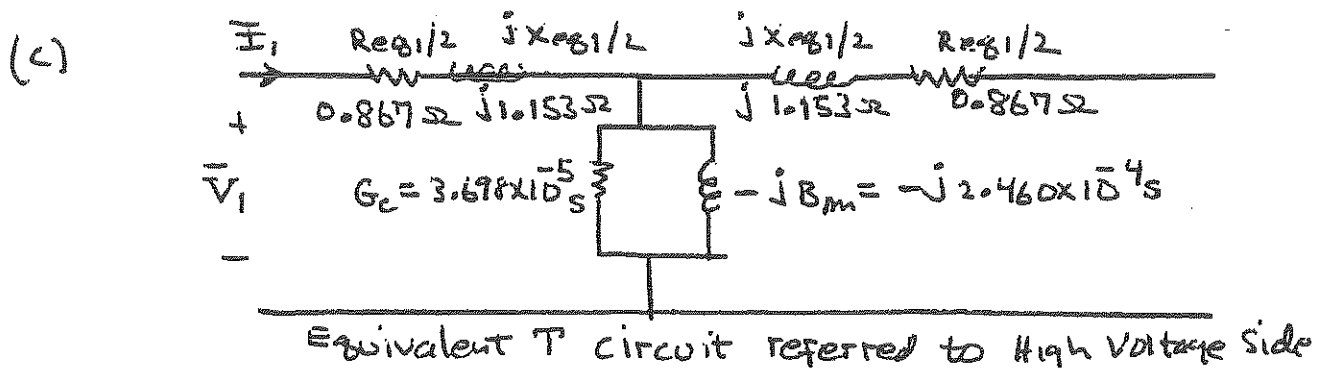 (c)
Ī₁ Req1/2 jXeq1/2 jXeq1/2 Req1/2
0.867Ω j1.153Ω j1.153Ω 0.867Ω
+
V̄₁ Gc = 3.698×10⁻⁵ S -jBm = -j2.460×10⁻⁴ S
−
Equivalent T circuit referred to High Voltage Side